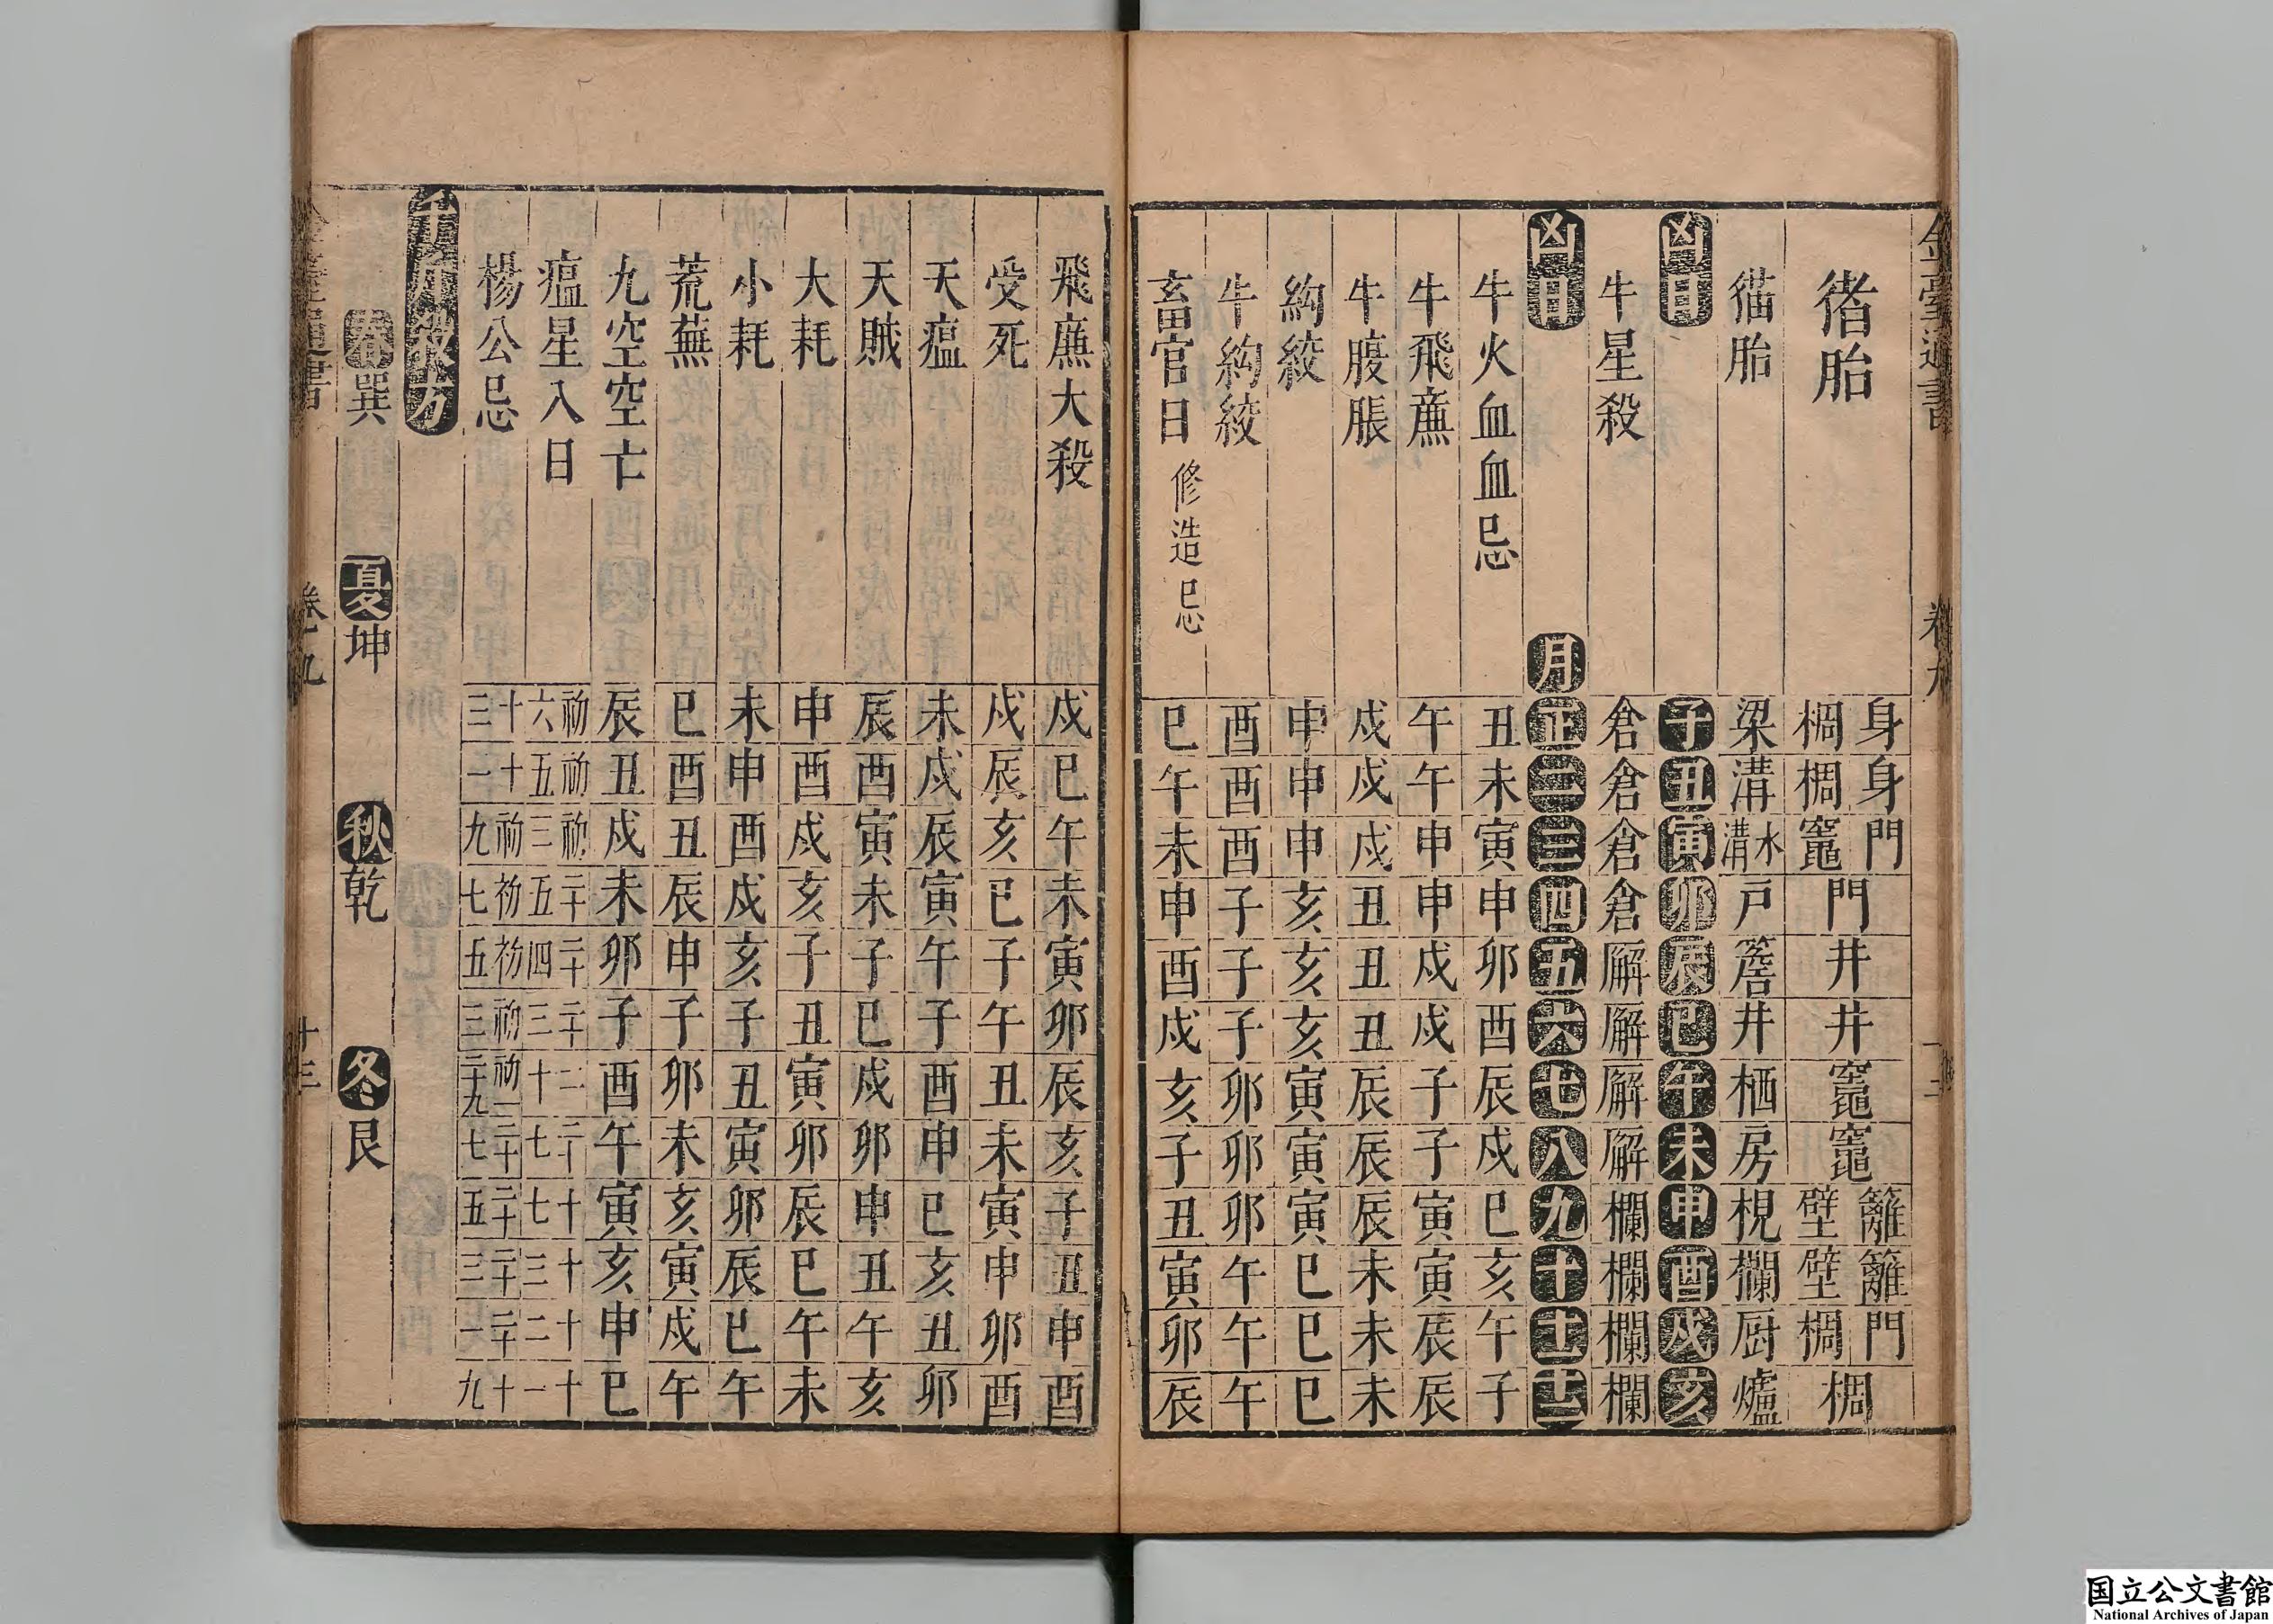 猪胎 身 身 門 門 井 井 竈 竈 籬 籬 門 椆
椆 椆 竈 壁 壁 椆
猫胎 梁 溝 溝水 戸 簷 井 栖 房 梘 欄 厨 爐
凶日 子 丑 寅 卯 辰 巳 午 未 申 酉 戌 亥
牛星殺 倉 倉 倉 倉 廨 廨 廨 廨 欄 欄 欄 欄
凶日 月 正 二 三 四 五 六 七 八 九 十 十一 十二
牛火血血忌 丑 未 寅 申 卯 酉 辰 戌 巳 亥 午 子
牛飛廉 午 午 申 申 戌 戌 子 子 寅 寅 辰 辰
牛腹脹 戌 戌 戌 丑 丑 丑 辰 辰 辰 未 未 未
絢絞 申 申 申 亥 亥 亥 寅 寅 寅 巳 巳 巳
牛絢絞 酉 酉 酉 子 子 子 卯 卯 卯 午 午 午
畜官日 修造忌 巳 午 未 申 酉 戌 亥 子 丑 寅 卯 辰
飛廉大殺 戌 巳 午 未 寅 卯 辰 亥 子 丑 申 酉
受死 戌 辰 亥 巳 子 午 丑 未 寅 申 卯 酉
天瘟 未 戌 辰 寅 午 子 酉 申 巳 亥 丑 卯
天賊 辰 酉 寅 未 子 巳 戌 卯 申 丑 午 亥
大耗 申 酉 戌 亥 子 丑 寅 卯 辰 巳 午 未
小耗 未 申 酉 戌 亥 子 丑 寅 卯 辰 巳 午
荒蕪 巳 酉 丑 辰 申 子 卯 未 亥 寅 戌 午
九空空亡 辰 丑 戌 未 卯 子 酉 午 寅 亥 申 巳
瘟星入日 初六 初五 初三 二十五 二十四 二十三 二十 二十七 十七 十三 十二 十一
楊公忌 十三 十一 初九 初七 初五 初三 初一二十九 二十七 二十五 二十三 二十一 十九
春巽 夏坤 秋乾 冬艮
金臺通書 卷九 十三
国立公文書館
National Archives of Japan